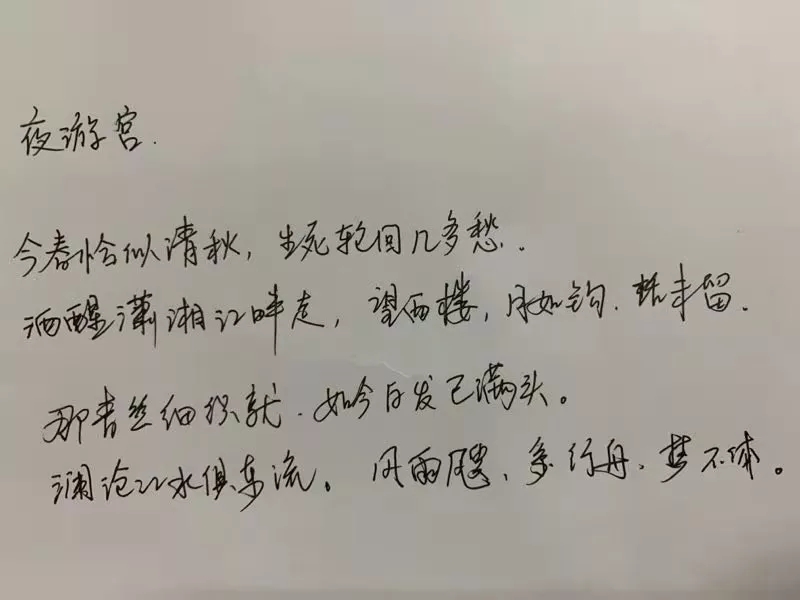 夜游宫.
今春恰似清秋，生死轮回几多愁.
酒醒潇湘江畔走，望西楼，月如钩.
那青丝细织就.如今白发已满头。
澜沧江水俱东流。风雨飔、系行舟.梦不休。